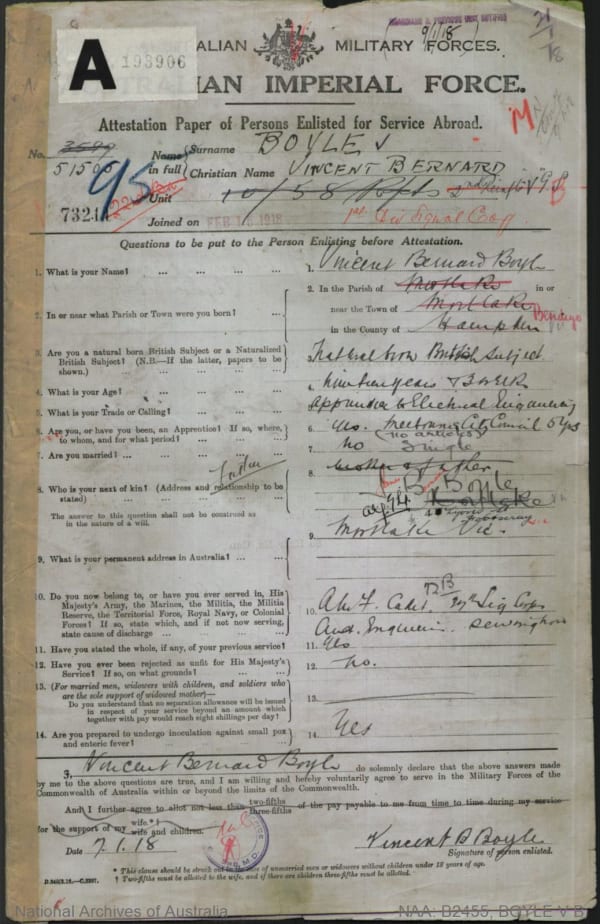 9/1/18
AUSTRALIAN MILITARY FORCES.
A 193906
AUSTRALIAN IMPERIAL FORCE.
Attestation Paper of Persons Enlisted for Service Abroad.
No. 51500
Name in full
Surname BOYLE
Christian Name VINCENT BERNARD
95
Unit
7324
Joined on FEB 16 1918
1st Div Signal Coy
Questions to be put to the Person Enlisting before Attestation.
1. What is your Name? ... 1. Vincent Bernard Boyle
2. In or near what Parish or Town were you born? ... 2. In the Parish of Mortlake in or
near the Town of Mortlake Bendigo
in the County of Hampden
3. Are you a natural born British Subject or a Naturalized British Subject? (N.B.—If the latter, papers to be shown.) Natural born British Subject
4. What is your Age? ... nineteen years
5. What is your Trade or Calling? ... Apprentice to Electrical Engineering
6. Are you, or have you been, an Apprentice? If so, where, to whom, and for what period? ... 6. Yes. Melbourne City Council 5 yrs
(no articles)
7. Are you married? ... 7. no Single
8. Who is your next of kin? (Address and relationship to be stated) ... 8. Mother father
B Boyle
Mortlake
Footscray
The answer to this question shall not be construed as in the nature of a will.
9. What is your permanent address in Australia? ... 9. Mortlake Vic.
10. Do you now belong to, or have you ever served in, His Majesty's Army, the Marines, the Militia, the Militia Reserve, the Territorial Force, Royal Navy, or Colonial Forces? If so, state which, and if not now serving, state cause of discharge ... 10. Cadet, Sig Corps
Aust. Engineers
11. Have you stated the whole, if any, of your previous service? 11. Yes
12. Have you ever been rejected as unfit for His Majesty's Service? If so, on what grounds? ... 12. no.
13. (For married men, widowers with children, and soldiers who are the sole support of widowed mother)—
Do you understand that no separation allowance will be issued in respect of your service beyond an amount which together with pay would reach eight shillings per day? 13.
14. Are you prepared to undergo inoculation against small pox and enteric fever? ... 14. Yes
I, Vincent Bernard Boyle do solemnly declare that the above answers made
by me to the above questions are true, and I am willing and hereby voluntarily agree to serve in the Military Forces of the
Commonwealth of Australia within or beyond the limits of the Commonwealth.
And I further agree to allot not less than two-fifths three-fifths of the pay payable to me from time to time during my service
for the support of my wife.*† wife and children.
Date 7.1.18
Vincent B Boyle
Signature of person enlisted.
* This clause should be struck out in the case of unmarried men or widowers without children under 18 years of age.
† Two-fifths must be allotted to the wife, and if there are children three-fifths must be allotted.
National Archives of Australia
NAA: B2455, BOYLE V B